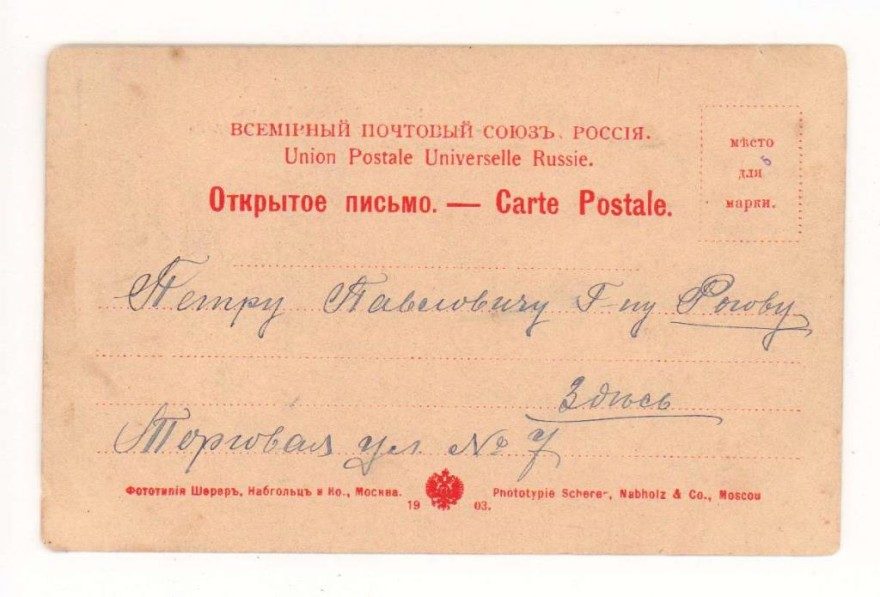 ВСЕМІРНЫЙ ПОЧТОВЫЙ СОЮЗЪ. РОССІЯ.
Union Postale Universelle Russie.
Открытое письмо. — Carte Postale.
мѣсто
для
марки.
Петру Павловичу Г-ну Рогову
Здѣсь
Торговая ул № 7
Фототипія Шереръ, Набгольцъ и Ко., Москва.
Phototypie Scherer, Nabholz & Co., Moscou
19 03.